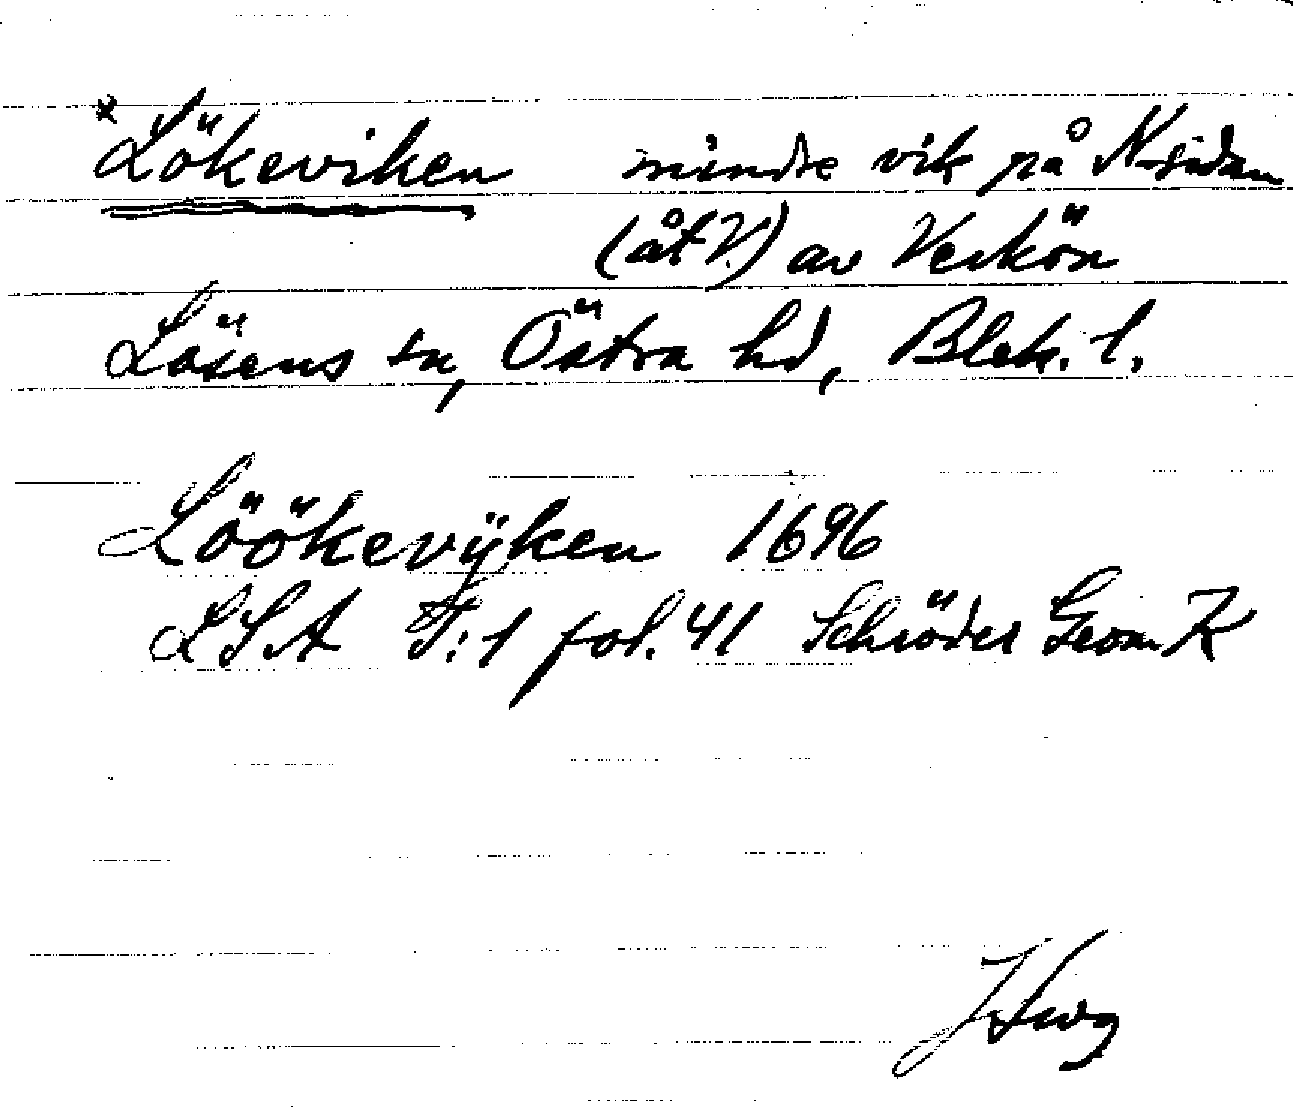 *Lökeviken mindre vik på N-sidan
(åt V.) av Verkön
Lösens sn, Östra hd, Blek. l.
Löökevÿken 1696
LSA T:1 fol. 41 Schröder Geom K